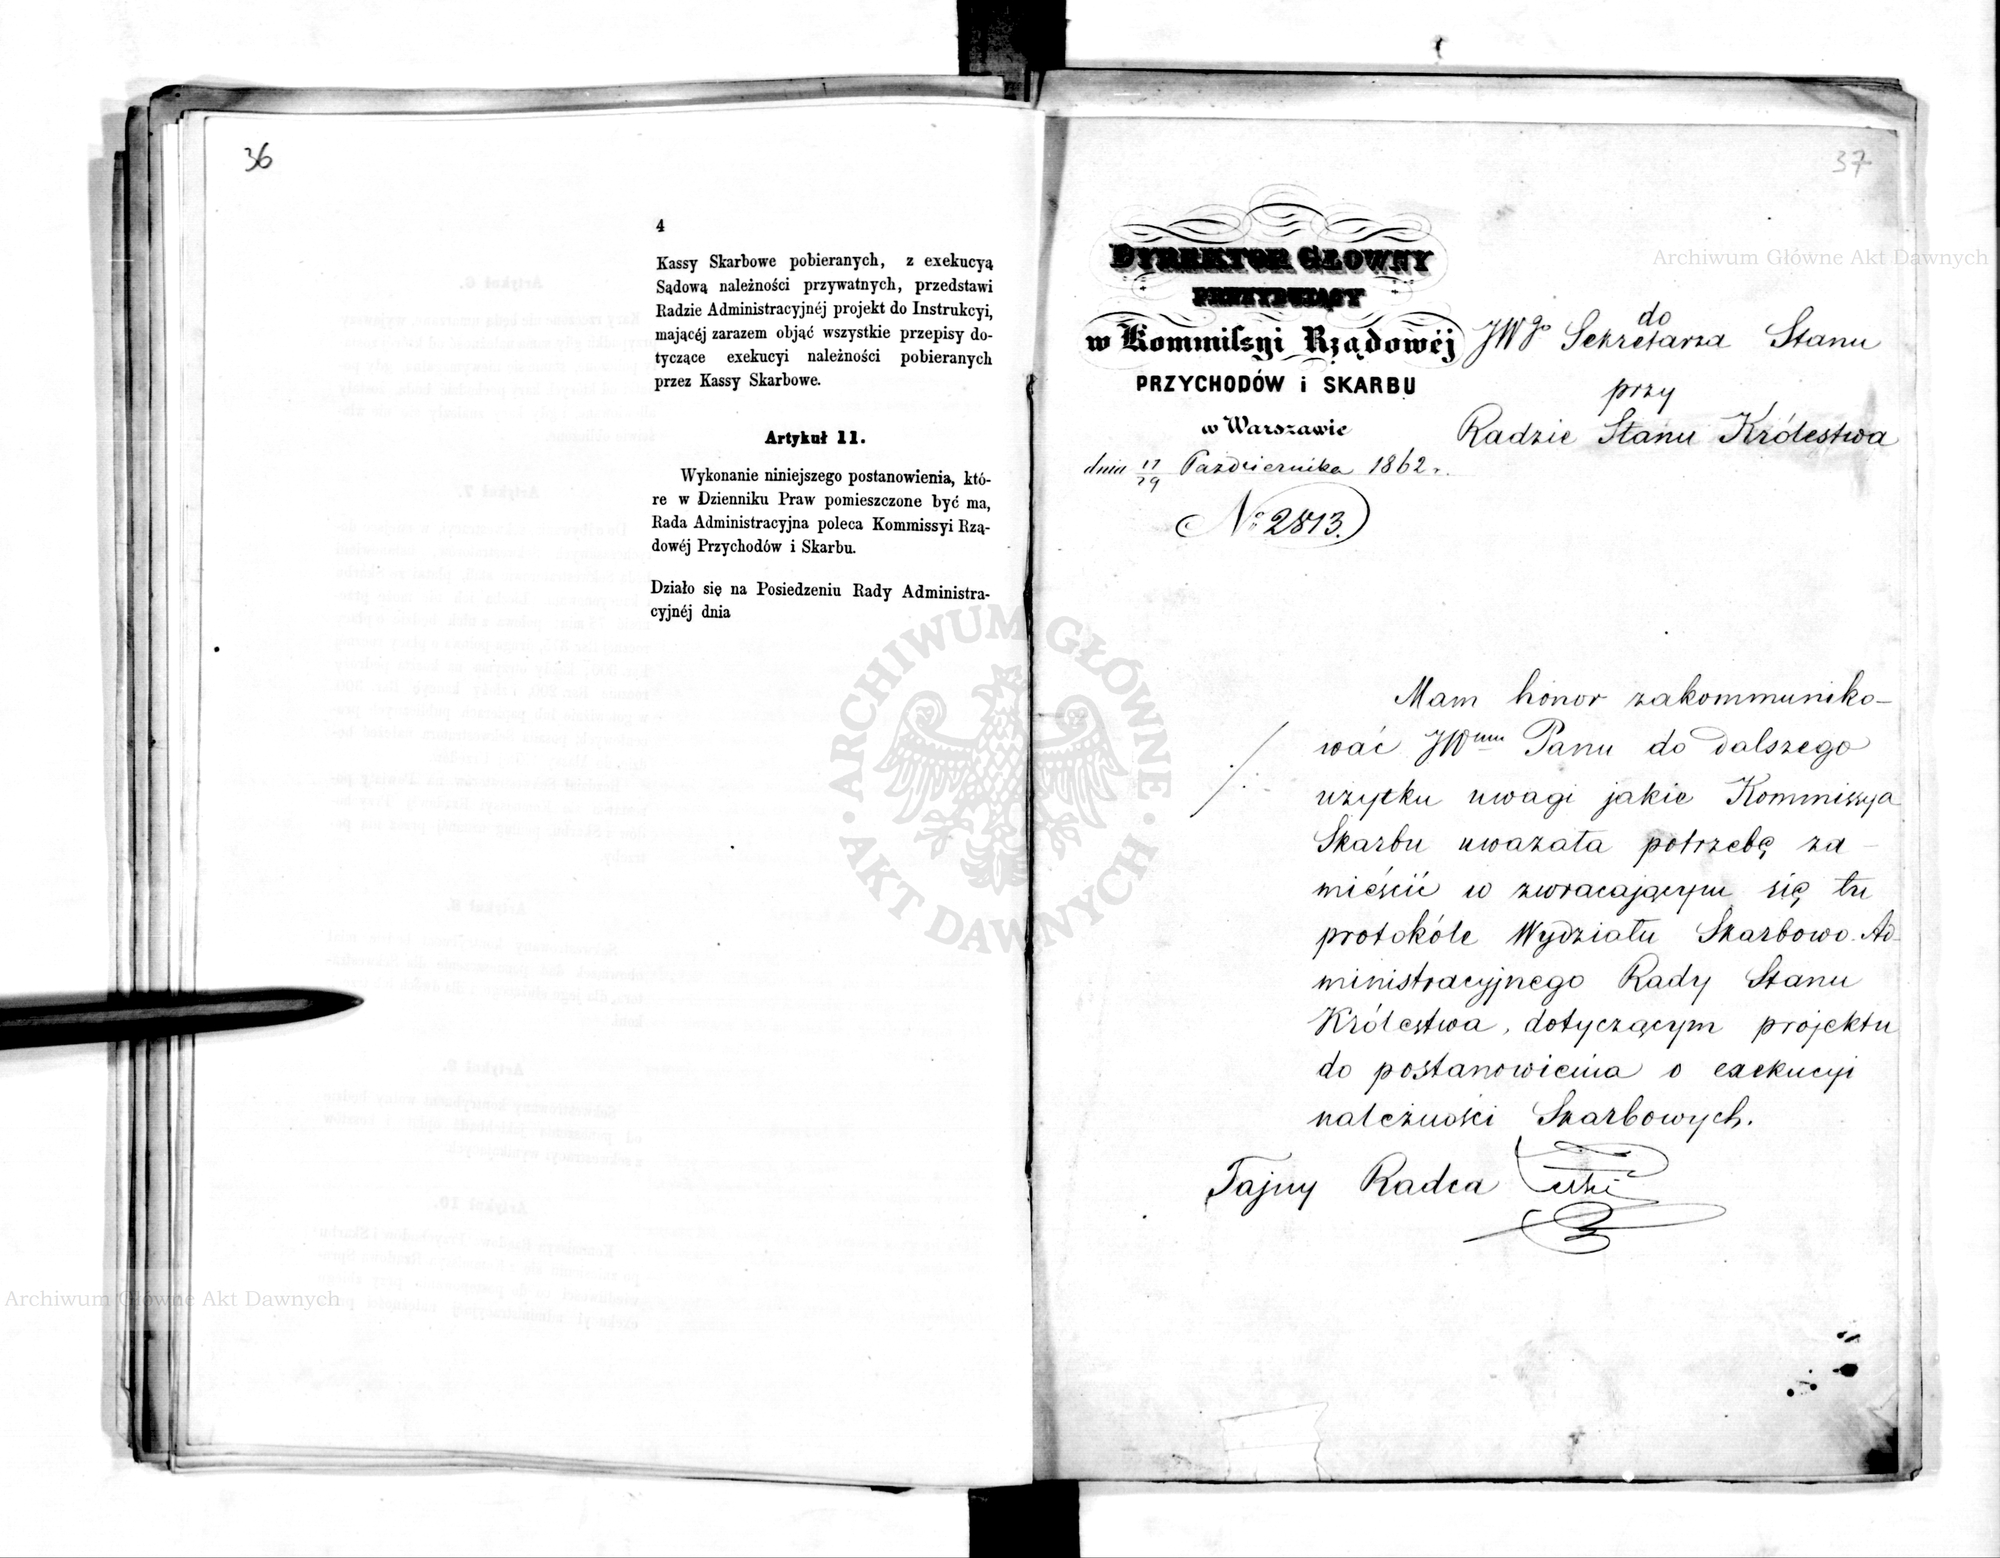 36
4
Kassy Skarbowe pobieranych, z exekucyą
Sądową należności przywatnych, przedstawi
Radzie Administracyjnéj projekt do Instrukcyi,
mającéj zarazem objąć wszystkie przepisy do-
tyczące exekucyi należności pobieranych
przez Kassy Skarbowe.
Artykuł 11.
Wykonanie niniejszego postanowienia, któ-
re w Dzienniku Praw pomieszczone być ma,
Rada Administracyjna poleca Kommissyi Rzą-
dowéj Przychodów i Skarbu.
Działo się na Posiedzeniu Rady Administra-
cyjnéj dnia
37
DYREKTOR GŁÓWNY
PREZYDUJĄCY
w Kommissyi Rządowéj
PRZYCHODÓW i SKARBU
w Warszawie
dnia 17/29 Października 1862 r.
No 2813.
do
JWgo Sekretarza Stanu
przy
Radzie Stanu Królestwa
Mam honor zakommuniko-
wać JWmu Panu do dalszego
użytku uwagi jakie Kommissya
Skarbu uważała potrzebę za-
mieścić w zwracającym się tu
protokóle Wydziału Skarbowo-Ad-
ministracyjnego Rady Stanu
Królestwa, dotyczącym projektu
do postanowienia o exekucyi
należności Skarbowych.
Tajny Radca
Archiwum Główne Akt Dawnych
ARCHIWUM GŁÓWNE
AKT DAWNYCH
Archiwum Główne Akt Dawnych